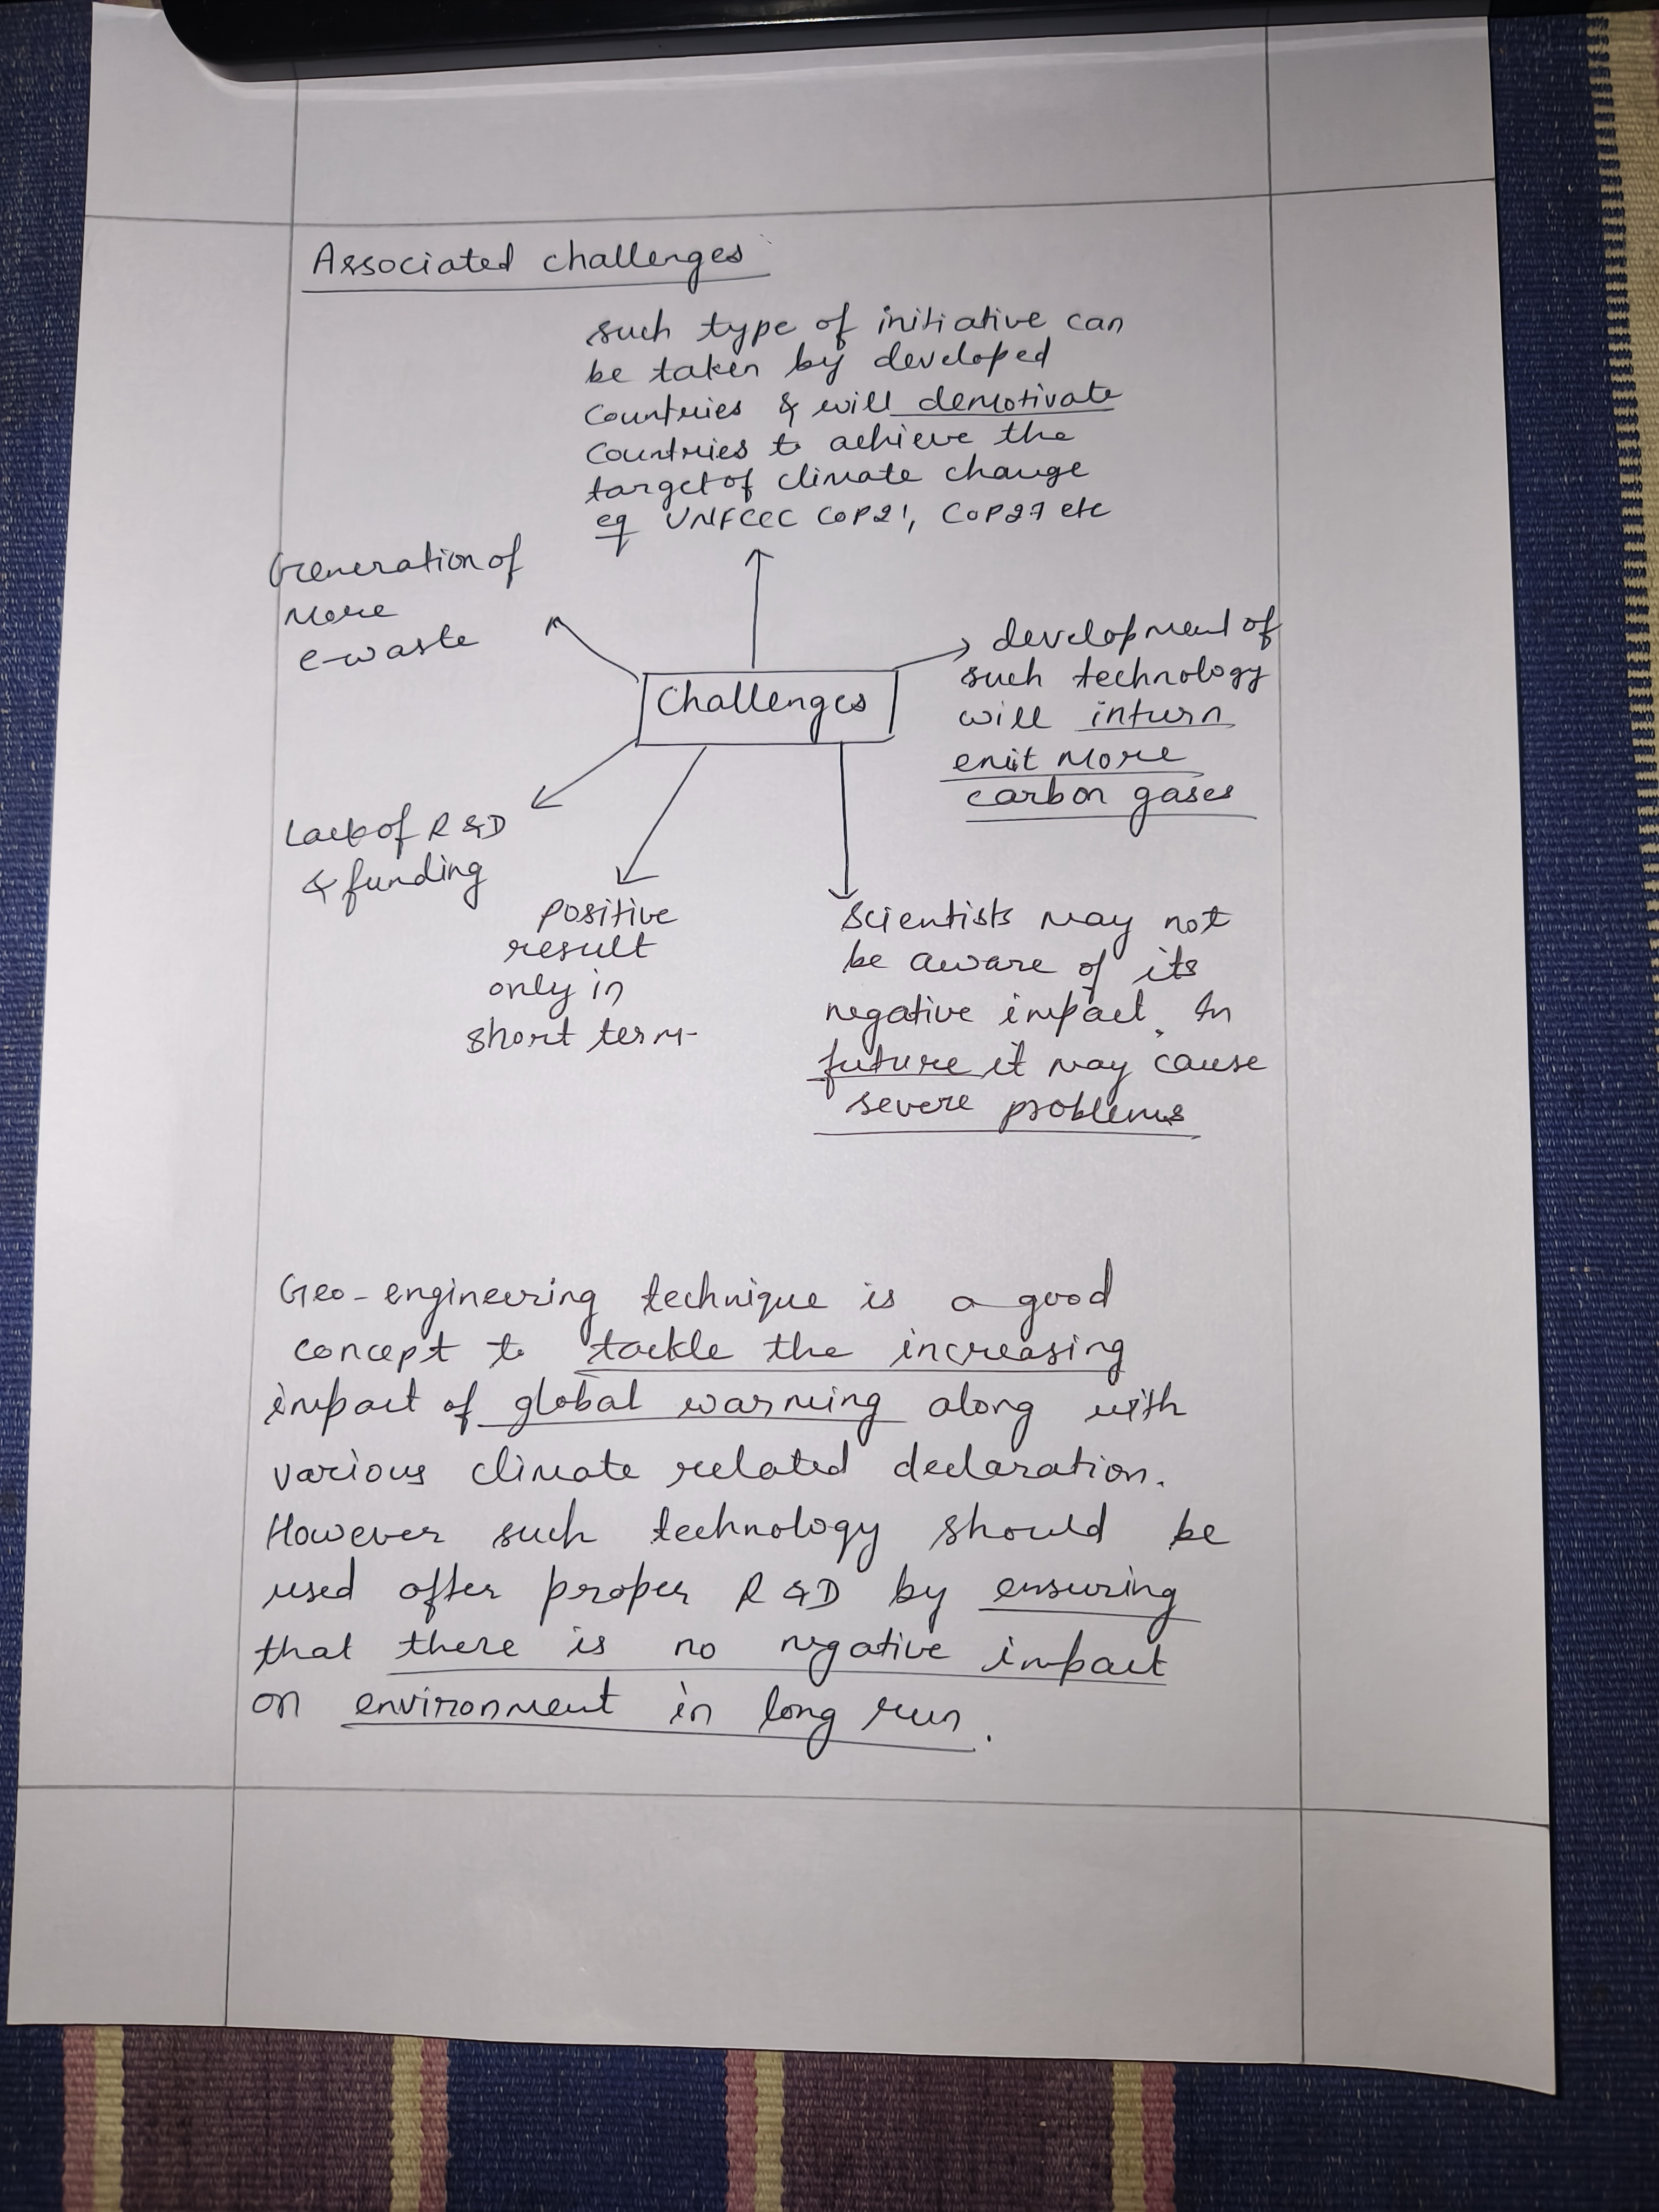 Associated challenges
such type of initiative can
be taken by developed
countries & will demotivate
countries to achieve the
target of climate change
eg UNFCCC COP21, COP27 etc
Generation of
more
e-waste
Challenges
development of
such technology
will inturn
emit more
carbon gases
Lack of R &D
& funding
positive
result
only in
short term
Scientists may not
be aware of its
negative impact. In
future it may cause
severe problems
Geo-engineering technique is a good
concept to tackle the increasing
impact of global warming along with
various climate related declaration.
However such technology should be
used after proper R &D by ensuring
that there is no negative impact
on environment in long run.